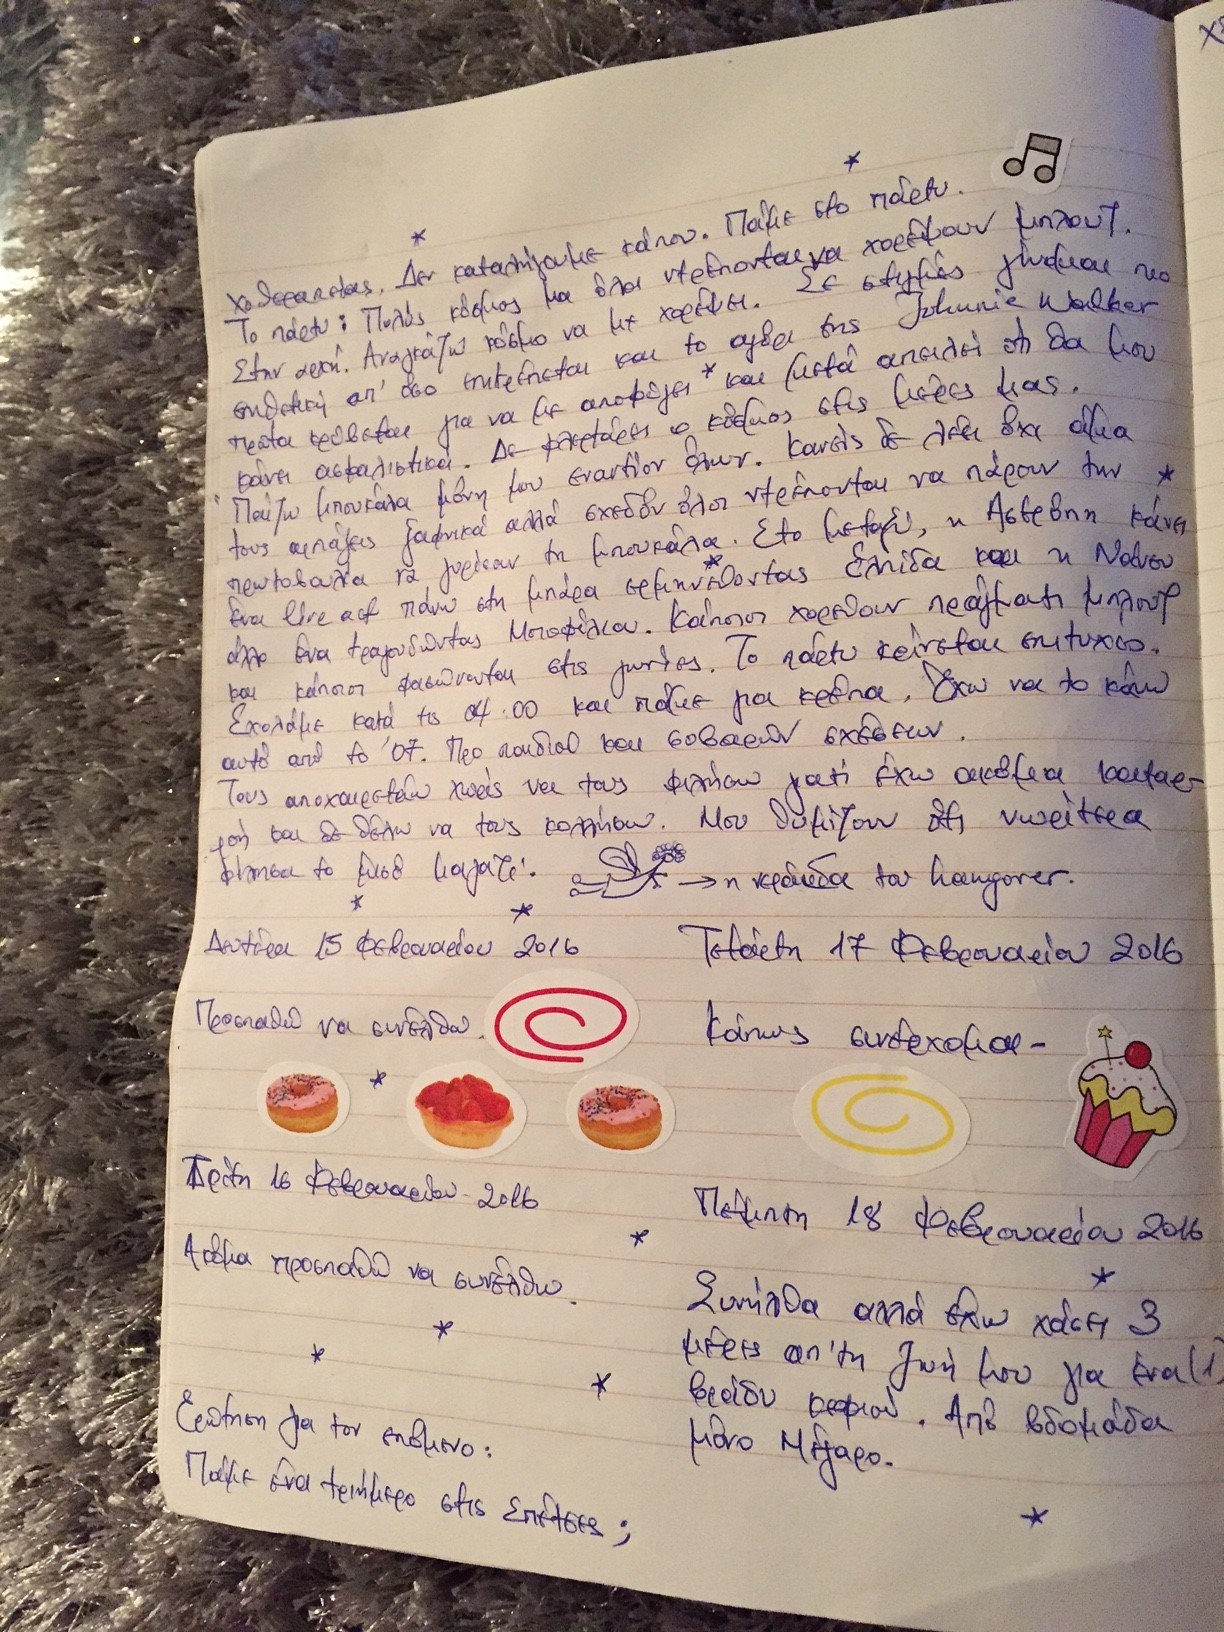 χοθεραπείας. Δεν καταλήγουμε κάπου. Πάμε στο πάρτυ.
Το πάρτυ: Πολύς κόσμος μα όλοι ντρέπονται να χορέψουν μπλουζ.
Στην αρχή. Αναγκάζω κόσμο να με χορέψει. Σε στιγμές γίνομαι πιο
επιθετική απ' όσο επιτρέπεται και το αγόρι της Johnnie Walker
πρώτα κρύβεται για να με αποφύγει και μετά απειλεί ότι θα μου
κάνει ασφαλιστικά. Δε φλερτάρει ο κόσμος στις μέρες μας.
Παίζω μπουκάλα μόνη μου εναντίον όλων. Κανείς δε λέει όχι άμα
τους αρπάξεις ξαφνικά αλλά σχεδόν όλοι ντρέπονται να πάρουν την
πρωτοβουλία να γυρίσουν τη μπουκάλα. Στο μεταξύ, η Αστερόπη κάνει
ένα live act πάνω στη μπάρα ερμηνεύοντας Ελπίδα και η Νάνσυ
άλλο ένα τραγουδώντας Μποφίλιου. Κάποιοι χορεύουν πράγματι μπλουζ
και κάποιοι φασώνονται στις γωνίες. Το πάρτυ κρίνεται επιτυχές.
Σχολάμε κατά τις 04:00 και πάμε για κρέπα. Έχω να το κάνω
αυτό από το '07. Προ παιδιού και σοβαρών σχέσεων.
Τους αποχαιρετάω χωρίς να τους φιλήσω γιατί έχω ακόμα καταρ-
ροή και δε θέλω να τους κολλήσω. Μου θυμίζουν ότι νωρίτερα
φίλησα το μισό μαγαζί.
→ η νεράιδα του hangover.
Δευτέρα 15 Φεβρουαρίου 2016
Προσπαθώ να συνέλθω.
Τρίτη 16 Φεβρουαρίου 2016
Ακόμα προσπαθώ να συνέλθω.
Ερώτηση για τον επόμενο:
Πάμε ένα τριήμερο στις Σπέτσες;
Τετάρτη 17 Φεβρουαρίου 2016
Κάπως συνέρχομαι-
Πέμπτη 18 Φεβρουαρίου 2016
Συνήλθα αλλά έχω χάσει 3
μέρες απ' τη ζωή μου για ένα (1)
βράδυ κεφιού. Από βδομάδα
μόνο Μέγαρο.